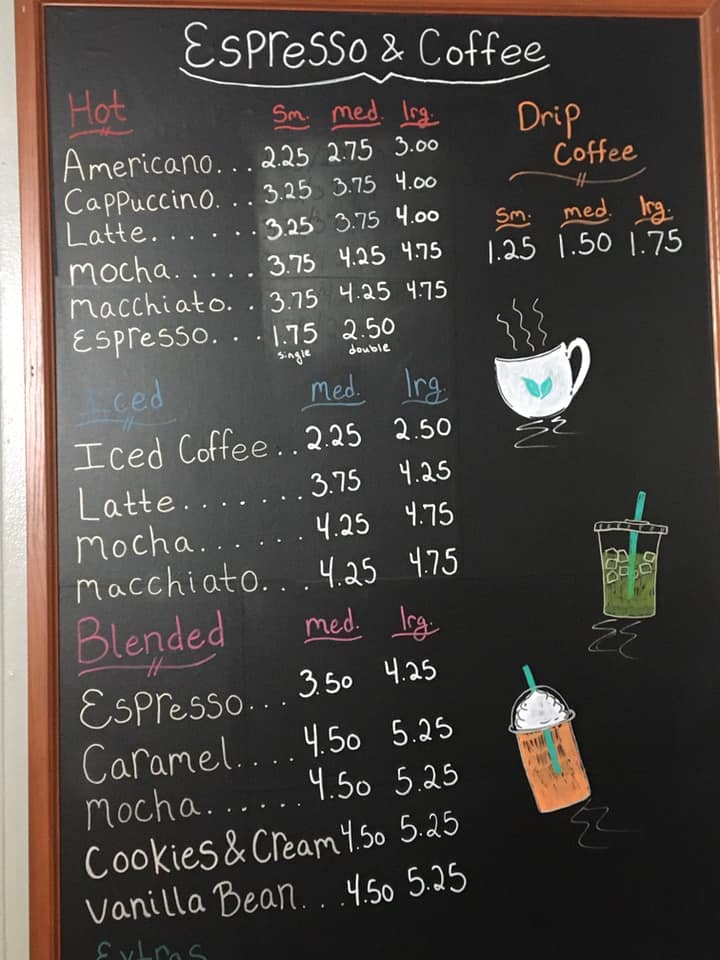 Espresso & Coffee
Hot Sm. med. lrg.
Americano... 2.25 2.75 3.00
Cappuccino... 3.25 3.75 4.00
Latte...... 3.25 3.75 4.00
mocha..... 3.75 4.25 4.75
macchiato.. 3.75 4.25 4.75
Espresso... 1.75 2.50
single double
Drip
Coffee
Sm. med. lrg.
1.25 1.50 1.75
Iced med. lrg.
Iced Coffee.. 2.25 2.50
Latte....... 3.75 4.25
mocha...... 4.25 4.75
macchiato... 4.25 4.75
Blended med. lrg.
Espresso... 3.50 4.25
Caramel.... 4.50 5.25
mocha...... 4.50 5.25
Cookies & Cream 4.50 5.25
Vanilla Bean... 4.50 5.25
Extras